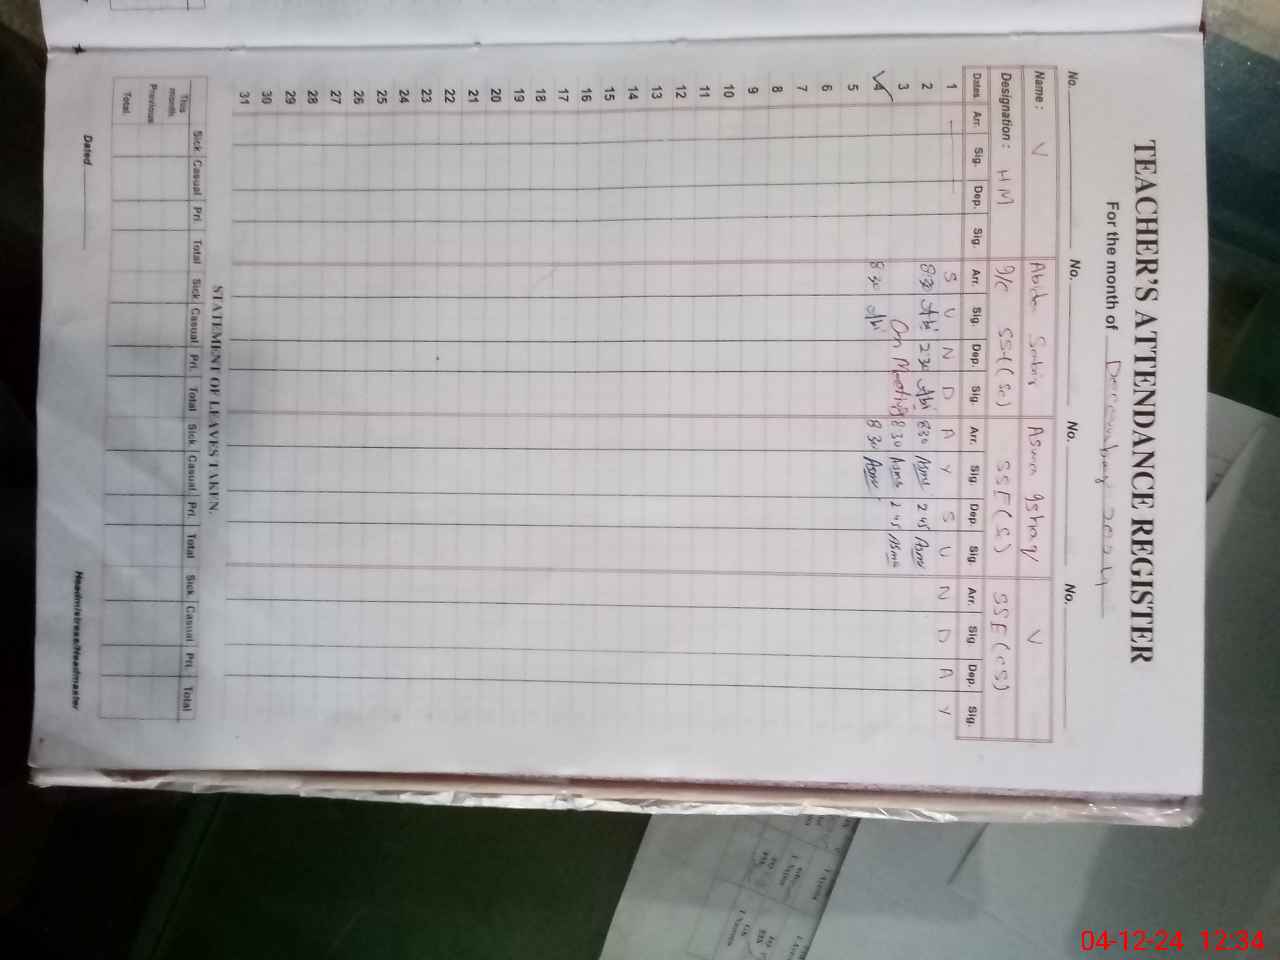 TEACHER'S ATTENDANCE REGISTER
For the month of December 2024
No. No. No. No.
Name : V Abida Sabir Asma Ishaq V
Designation : HM I/c SST(Sc) SSE(Sc) SSE(CS)
Dates Arr. Sig. Dep. Sig. Arr. Sig. Dep. Sig. Arr. Sig. Dep. Sig. Arr. Sig Dep. Sig.
1 S U N D A Y S U N D A Y
2 8:30 Abi 2:30 Abi 830 Asma 2 45 Asma
3 On Meeting 8 30 Asma 2 45 Asma
4 8 30 Abi 8 30 Asma
5
6
7
8
9
10
11
12
13
14
15
16
17
18
19
20
21
22
23
24
25
26
27
28
29
30
31
STATEMENT OF LEAVES TAKEN.
Sick Casual Pri. Total Sick Casual Pri. Total Sick Casual Pri. Total Sick Casual Pri. Total
This month
Previous
Total
Dated
Headmistress/Headmaster
04-12-24 12:34